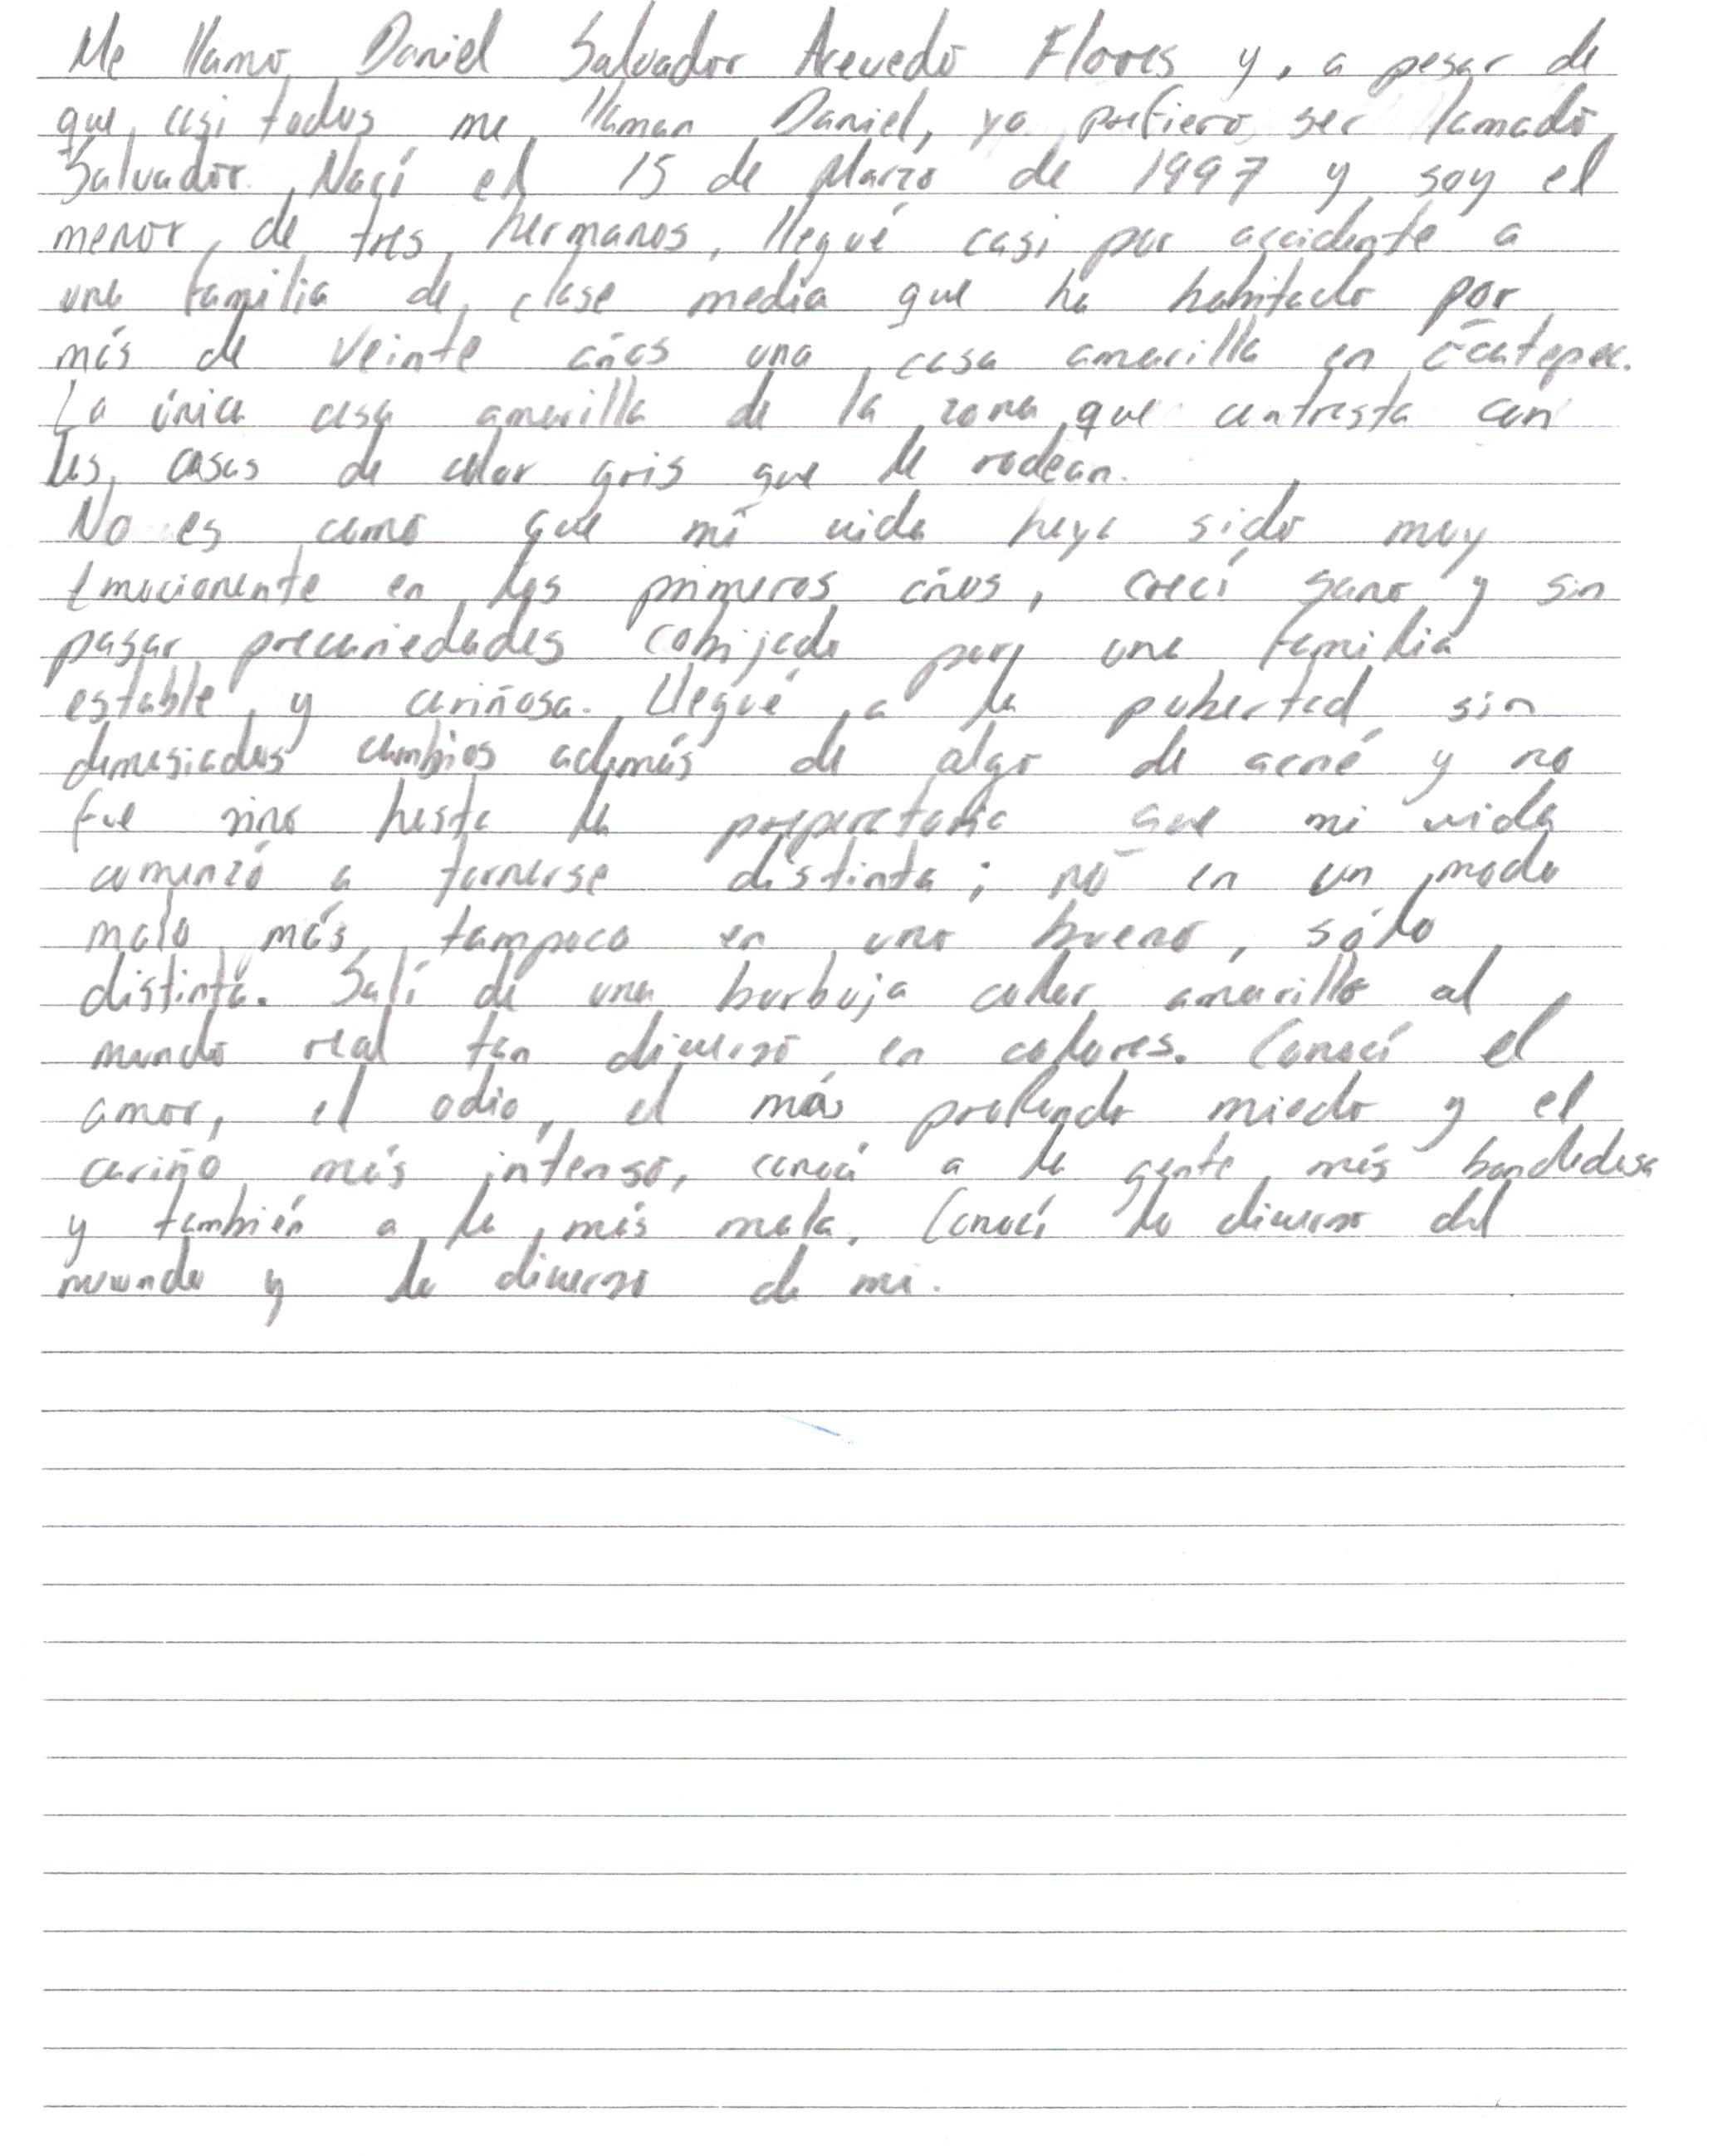 Me llamo Daniel Salvador Acevedo Flores y, a pesar de
que casi todos me llaman Daniel, yo prefiero ser llamado
Salvador. Nací el 15 de Marzo de 1997 y soy el
menor de tres hermanos, llegué casi por accidente a
una familia de clase media que ha habitado por
más de veinte años una casa amarilla en Ecatepec.
La única casa amarilla de la zona que contrasta con
las casas de color gris que le rodean.
No es como que mi vida haya sido muy
emocionante en los primeros años, crecí sano y sin
pasar precariedades cobijado por una familia
estable y cariñosa. Llegué a la pubertad sin
demasiados cambios además de algo de acné y no
fue sino hasta la preparatoria que mi vida
comenzó a tornarse distinta; no en un modo
malo más tampoco en uno bueno, sólo
distinta. Salí de una burbuja color amarillo al
mundo real tan diverso en colores. Conocí el
amor, el odio, el más profundo miedo y el
cariño más intenso, conocí a la gente más bondadosa
y también a la más mala. Conocí lo diverso del
mundo y lo diverso de mi.